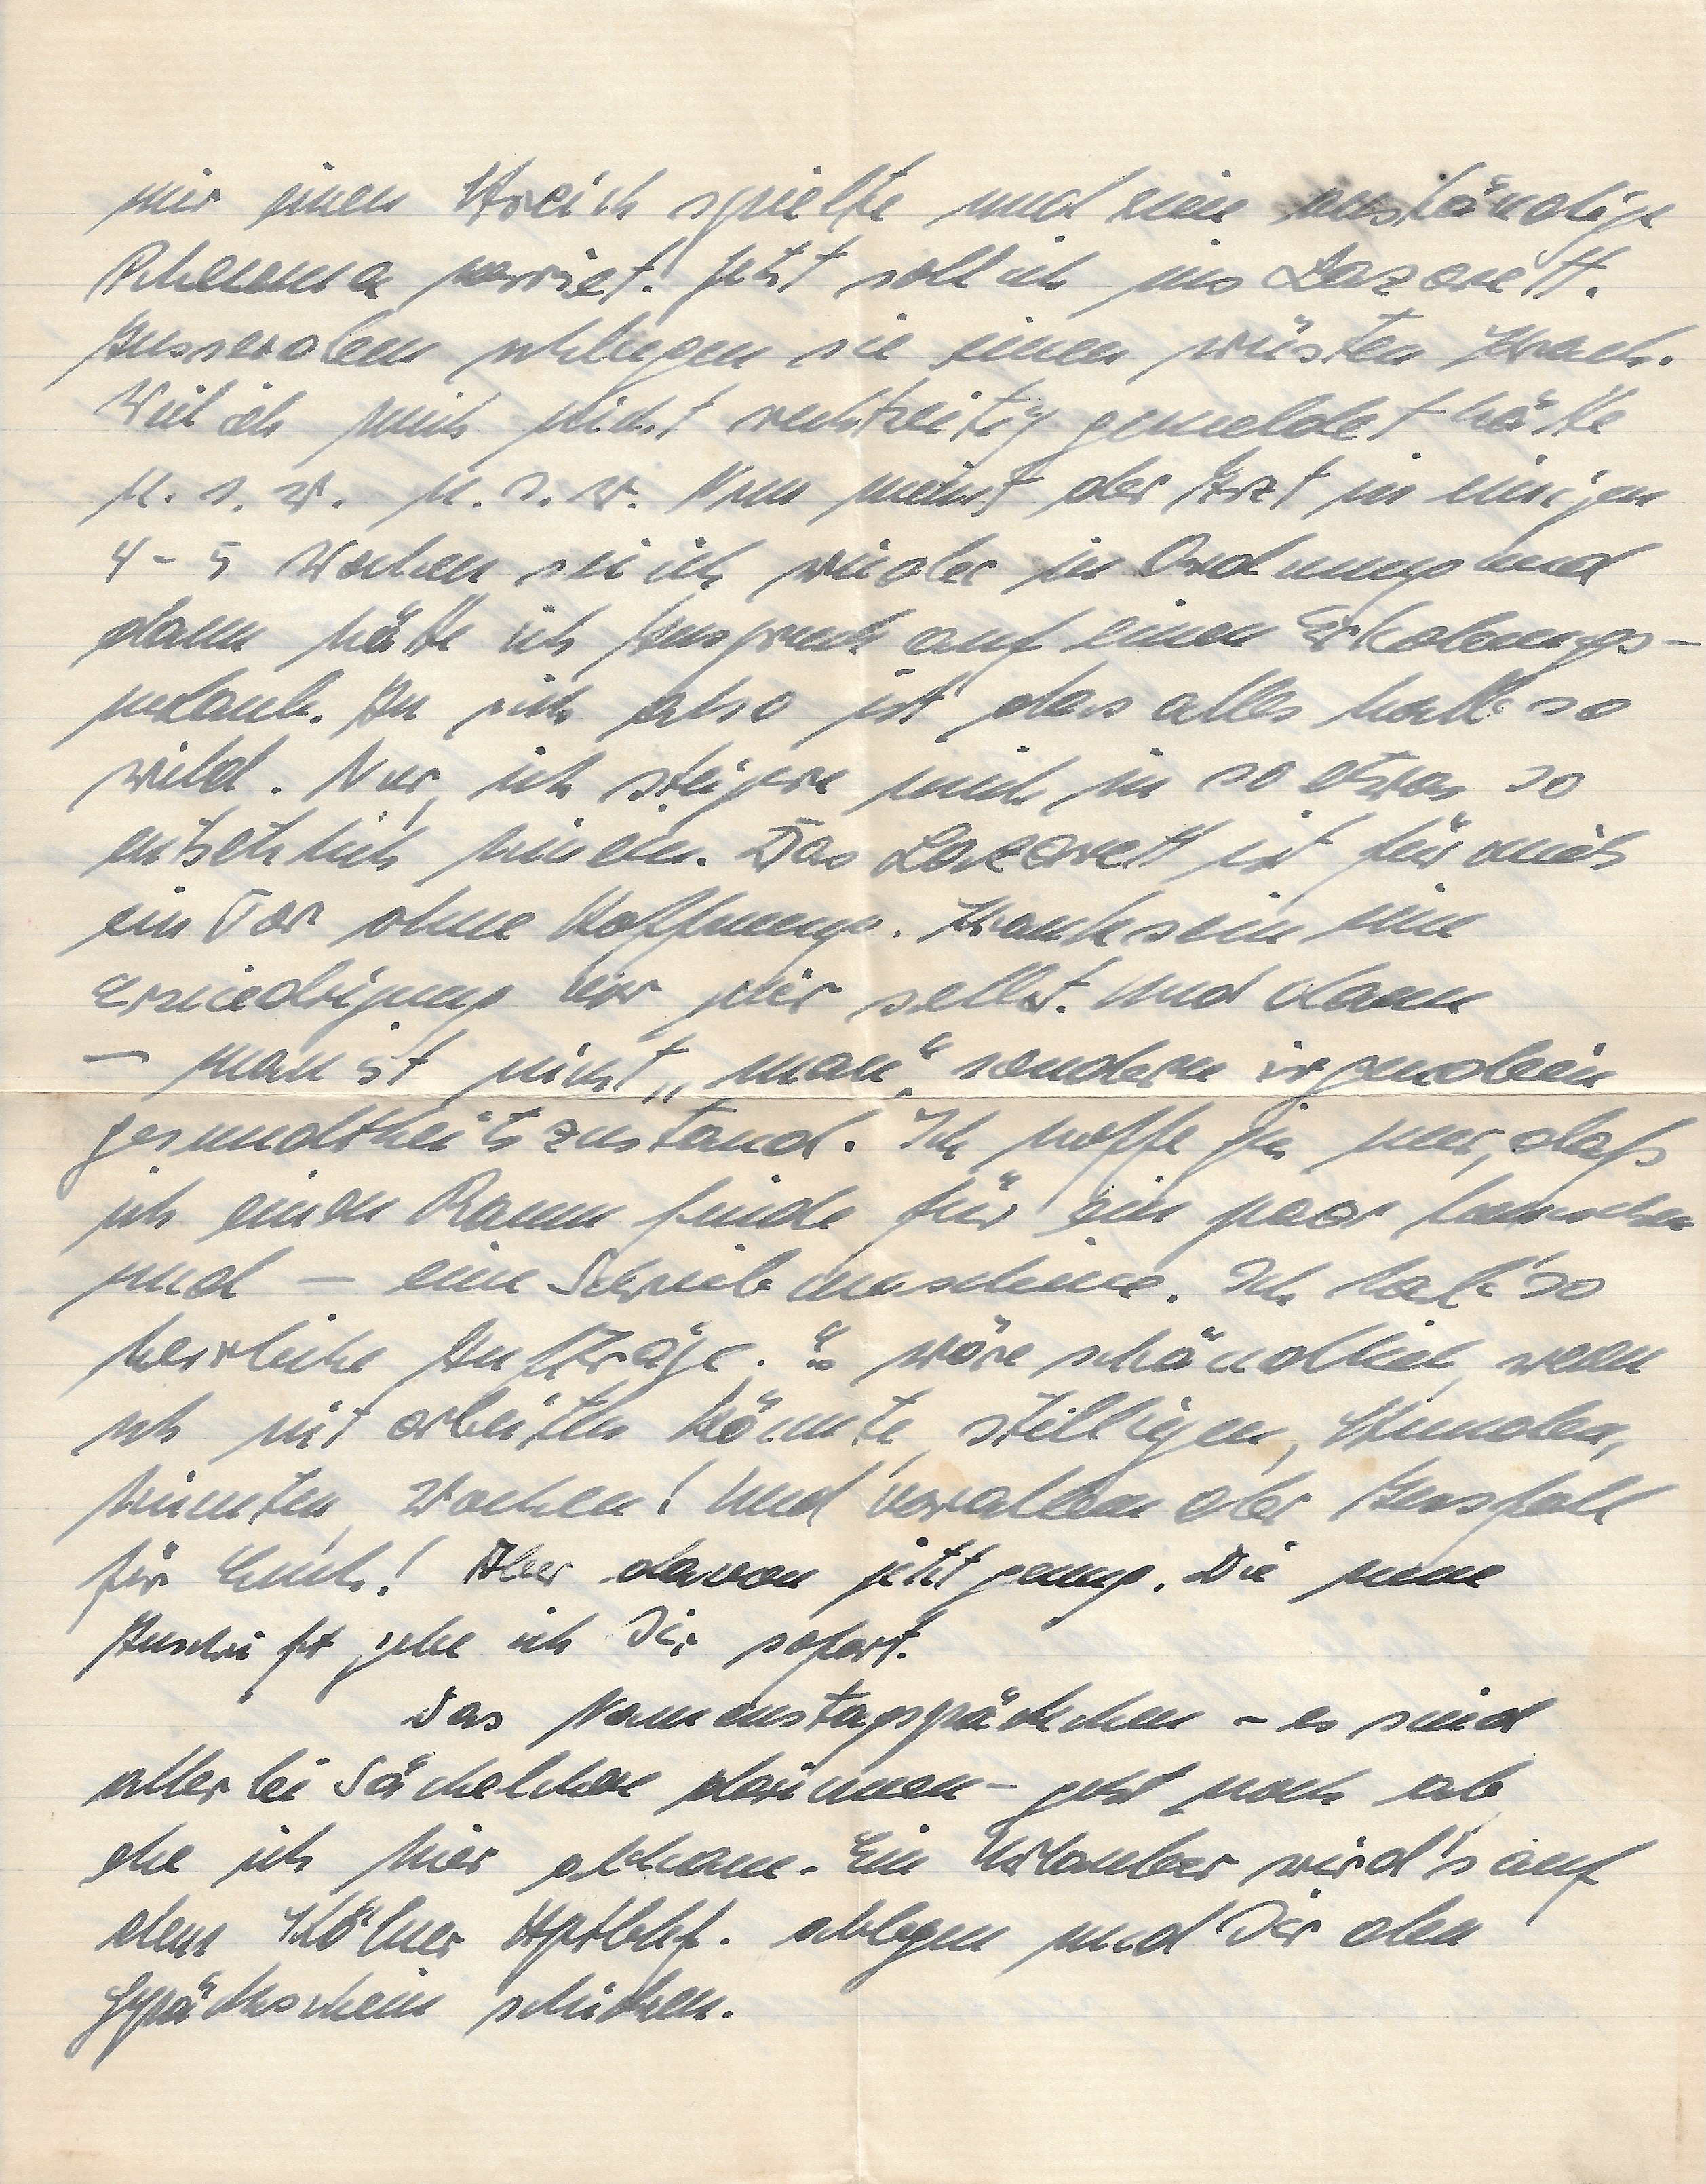 mir einen Streich spielte und eine anständige
Rheuma verriet. Jetzt soll ich ins Lazarett.
Ausserdem schlugen sie einen wüsten Krach.
Weil ich mich nicht rechtzeitig gemeldet hätte
u. s. w. u. s. w. Nun meint der Arzt in einigen
4 - 5 Wochen sei ich wieder in Ordnung und
dann hätte ich Anspruch auf einen Erholungs-
urlaub. An sich also ist das alles halb so
wild. Nur, ich steigere mich in so etwas so
entsetzlich hinein. Das Lazarett ist für mich
ein Tor ohne Hoffnung. Kranksein eine
Erniedrigung vor mir selbst. Und dann
– man ist nicht „man“ sondern irgendein
gesundtheitszustand. Ich hoffe ja nur, daß
ich einen Raum finde für ein paar
und – eine Schreibmaschine. Ich hab' so
herrliche Aufträge. Es wäre schändlich, wenn
ich nit arbeiten könnte, stilliegen, Stunden,
Wochen! Und vor allem der Ausfall
für Euch! Aber davon jetzt genug. Die neue
Anschrift gebe ich Dir sofort.
Das Namenstagspäckchen – es sind
allerlei Sächelchen darinnen – geht noch ab
ehe ich hier abkam. Ein Urlauber wird's auf
dem Kölner Hptbhf. ablegen und Dir den
Gepäckschein schicken.